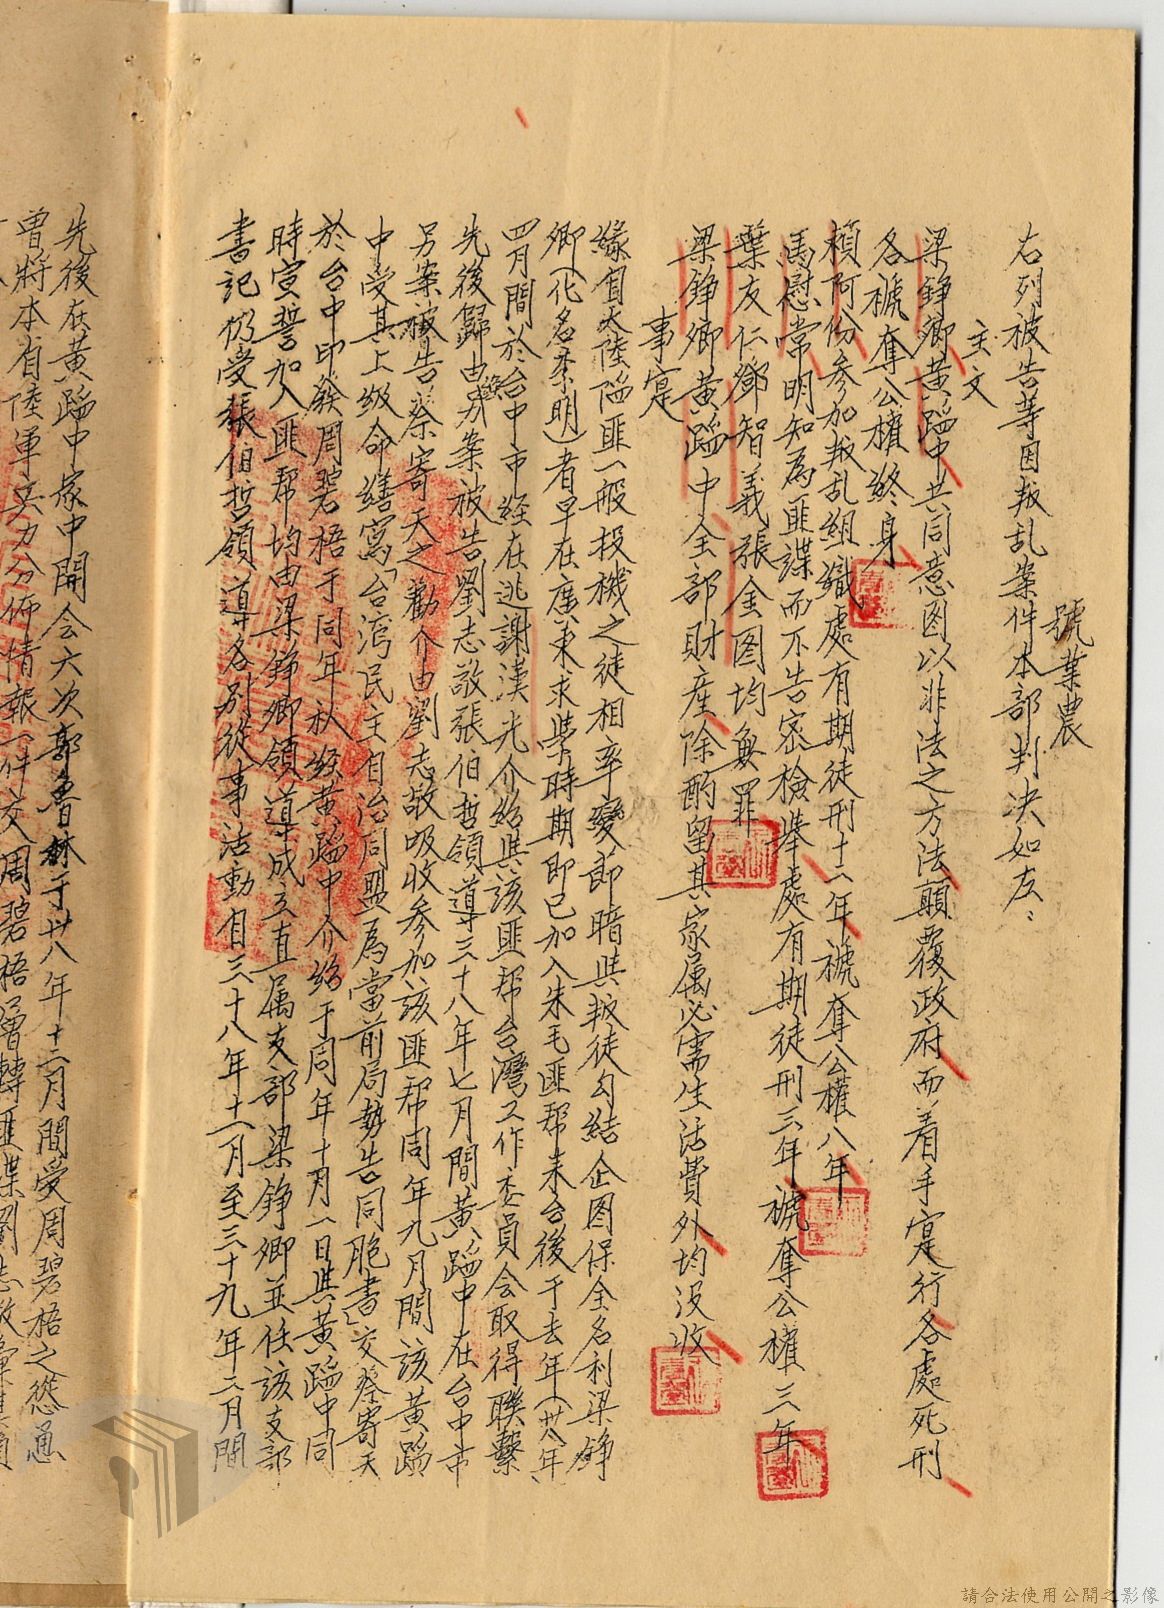 號業農
右列被告等因叛乱案件本部判决如左：
主文
梁錚卿黄蹈中共同意图以非法之方法顛覆政府而着手寔行各處死刑
各褫奪公權終身
賴阿份参加叛乱組織處有期徒刑十六年褫奪公權八年
馬慰常明知為匪諜而不告密檢舉處有期徒刑三年褫奪公權三年
葉友仁鄧智義張金图均無罪
梁錚卿黄蹈中全部財產除酌留其家属必需生活費外均没收
事寔
緣自大陸陷匪一般投機之徒相率變節暗與叛徒勾結企图保全名利梁錚
卿（化名李明）者早在廣東求學時期即已加入朱毛匪帮来台後于去年（卅八年
四月間於台中市經在逃謝漢光介紹與該匪帮台灣工作委員会取得聯繫
先後歸由另案被告劉志敬張伯哲領導三十八年七月間黄蹈中在台中市
另案被告蔡寄天之勸介由劉志敬吸收参加該匪帮同年九月間該黄蹈
中受其上级命繕寫「台湾民主自治同盟為當前局勢告同胞書」交蔡寄天
於台中印發周碧梧于同年秋候黄蹈中介紹于同年十月一日與黄蹈中同
時宣誓加入匪帮均由梁錚卿領導成立直属支部梁錚卿並任該支部
書記仍受張伯哲領導各别從事活動自三十八年十一月至三十九年二月間
先後在黄蹈中家中開会六次郭魯林于卅八年十二月間受周碧梧之慫恿
曾將本省陸軍兵力分佈情報一件交周碧梧層轉匪諜劉志敬彙
請合法使用公開之影像